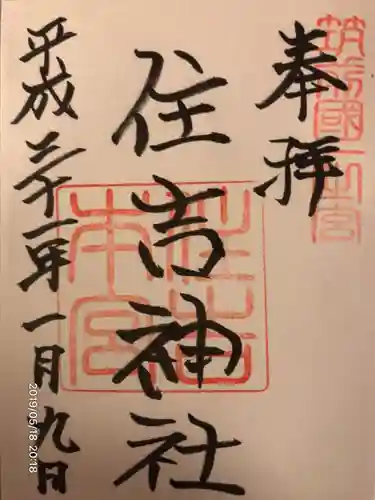 奉拝
筑前國一之宮
住吉神社
住吉本宮
平成三十一年一月九日
2019/05/18 20:18